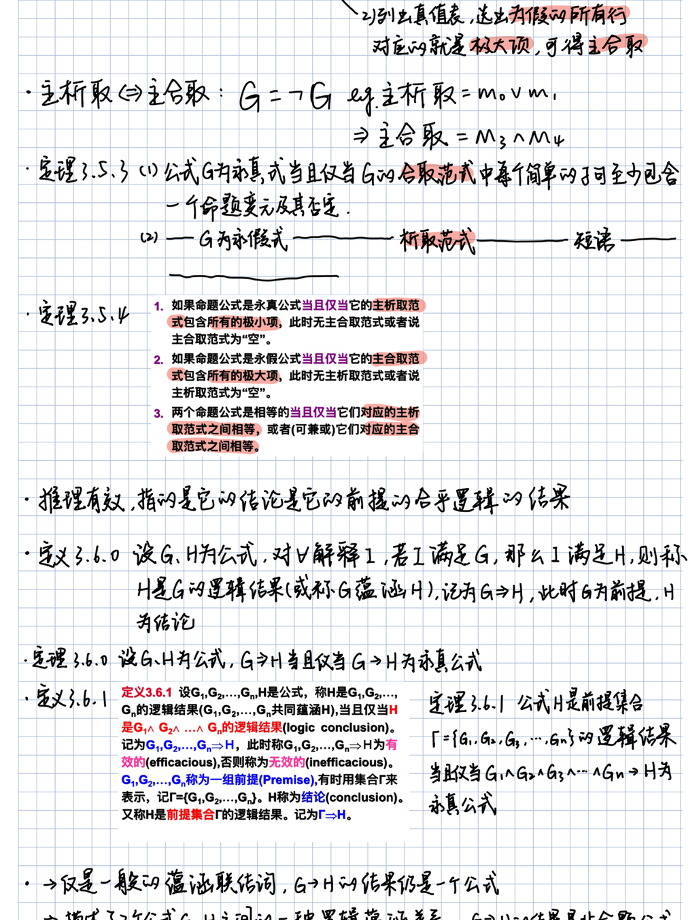 2)列出真值表,选出为假的所有行
对应的就是极大项,可得主合取
· 主析取⇔主合取: G=¬¬G eg.主析取=m₀∨m₁
⇒主合取=M₃∧M₄
· 定理3.5.3 (1) 公式G为永真式当且仅当G的合取范式中每个简单的子句至少包含
一个命题变元及其否定.
(2) — G为永假式 —— 析取范式 —— 短语 ——
· 定理3.5.4
1. 如果命题公式是永真公式当且仅当它的主析取范
式包含所有的极小项,此时无主合取范式或者说
主合取范式为“空”。
2. 如果命题公式是永假公式当且仅当它的主合取范
式包含所有的极大项,此时无主析取范式或者说
主析取范式为“空”。
3. 两个命题公式是相等的当且仅当它们对应的主析
取范式之间相等,或者(可兼或)它们对应的主合
取范式之间相等。
· 推理有效,指的是它的结论是它的前提的合乎逻辑的结果
· 定义3.6.0 设G、H为公式,对∀解释I,若I满足G,那么I满足H,则称
H是G的逻辑结果(或称G蕴涵H),记为G⇒H,此时G为前提,H
为结论
· 定理3.6.0 设G、H为公式,G⇒H当且仅当G→H为永真公式
· 定义3.6.1
定义3.6.1 设G₁,G₂,…,Gₙ,H是公式,称H是G₁,G₂,…,
Gₙ的逻辑结果(G₁,G₂,…,Gₙ共同蕴涵H),当且仅当H
是G₁∧ G₂∧ …∧ Gₙ的逻辑结果(logic conclusion)。
记为G₁,G₂,…,Gₙ⇒H,此时称G₁,G₂,…,Gₙ⇒H为有
效的(efficacious),否则称为无效的(inefficacious)。
G₁,G₂,…,Gₙ称为一组前提(Premise),有时用集合Γ来
表示,记Γ={G₁,G₂,…,Gₙ}。H称为结论(conclusion)。
又称H是前提集合Γ的逻辑结果。记为Γ⇒H。
定理3.6.1 公式H是前提集合
Γ={G₁,G₂,G₃,…,Gₙ}的逻辑结果
当且仅当G₁∧G₂∧G₃∧…∧Gₙ→H为
永真公式
· →仅是一般的蕴涵联结词,G→H的结果仍是一个公式